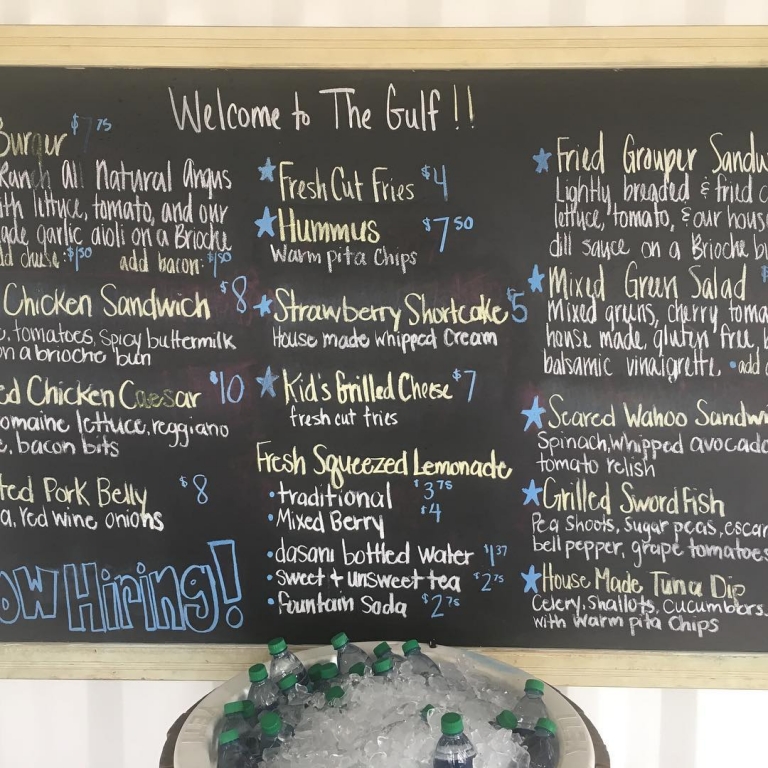 Welcome to The Gulf !!
Burger $7.75
Ranch All Natural Angus
ith lettuce, tomato, and our
ade garlic aioli on a Brioche
dd cheese: $1.50 add bacon: $1.50
Chicken Sandwich $8
tomatoes, spicy buttermilk
on a brioche bun
ed Chicken Caesar $10
omaine lettuce, reggiano
bacon bits
ted Pork Belly $8
a, red wine onions
ow Hiring!
Fresh Cut Fries $4
Hummus $7.50
Warm pita Chips
Strawberry Shortcake $5
House made whipped cream
Kid's Grilled Cheese $7
fresh cut fries
Fresh Squeezed Lemonade
•traditional $3.75
•Mixed Berry $4
•dasani bottled water $1.37
•sweet + unsweet tea $2.75
•fountain Soda $2.75
Fried Grouper Sandw
Lightly breaded & fried c
lettuce, tomato, & our house
dill sauce on a Brioche bu
Mixed Green Salad $
Mixed greens, cherry toma
house made, gluten free, b
balsamic vinaigrette •add c
Seared Wahoo Sandwi
Spinach, whipped avocado
tomato relish
Grilled SwordFish
Pea shoots, sugar peas, escar
bell pepper, grape tomatoes
House Made Tuna Dip
Celery, Shallots, Cucumbers
with warm pita Chips